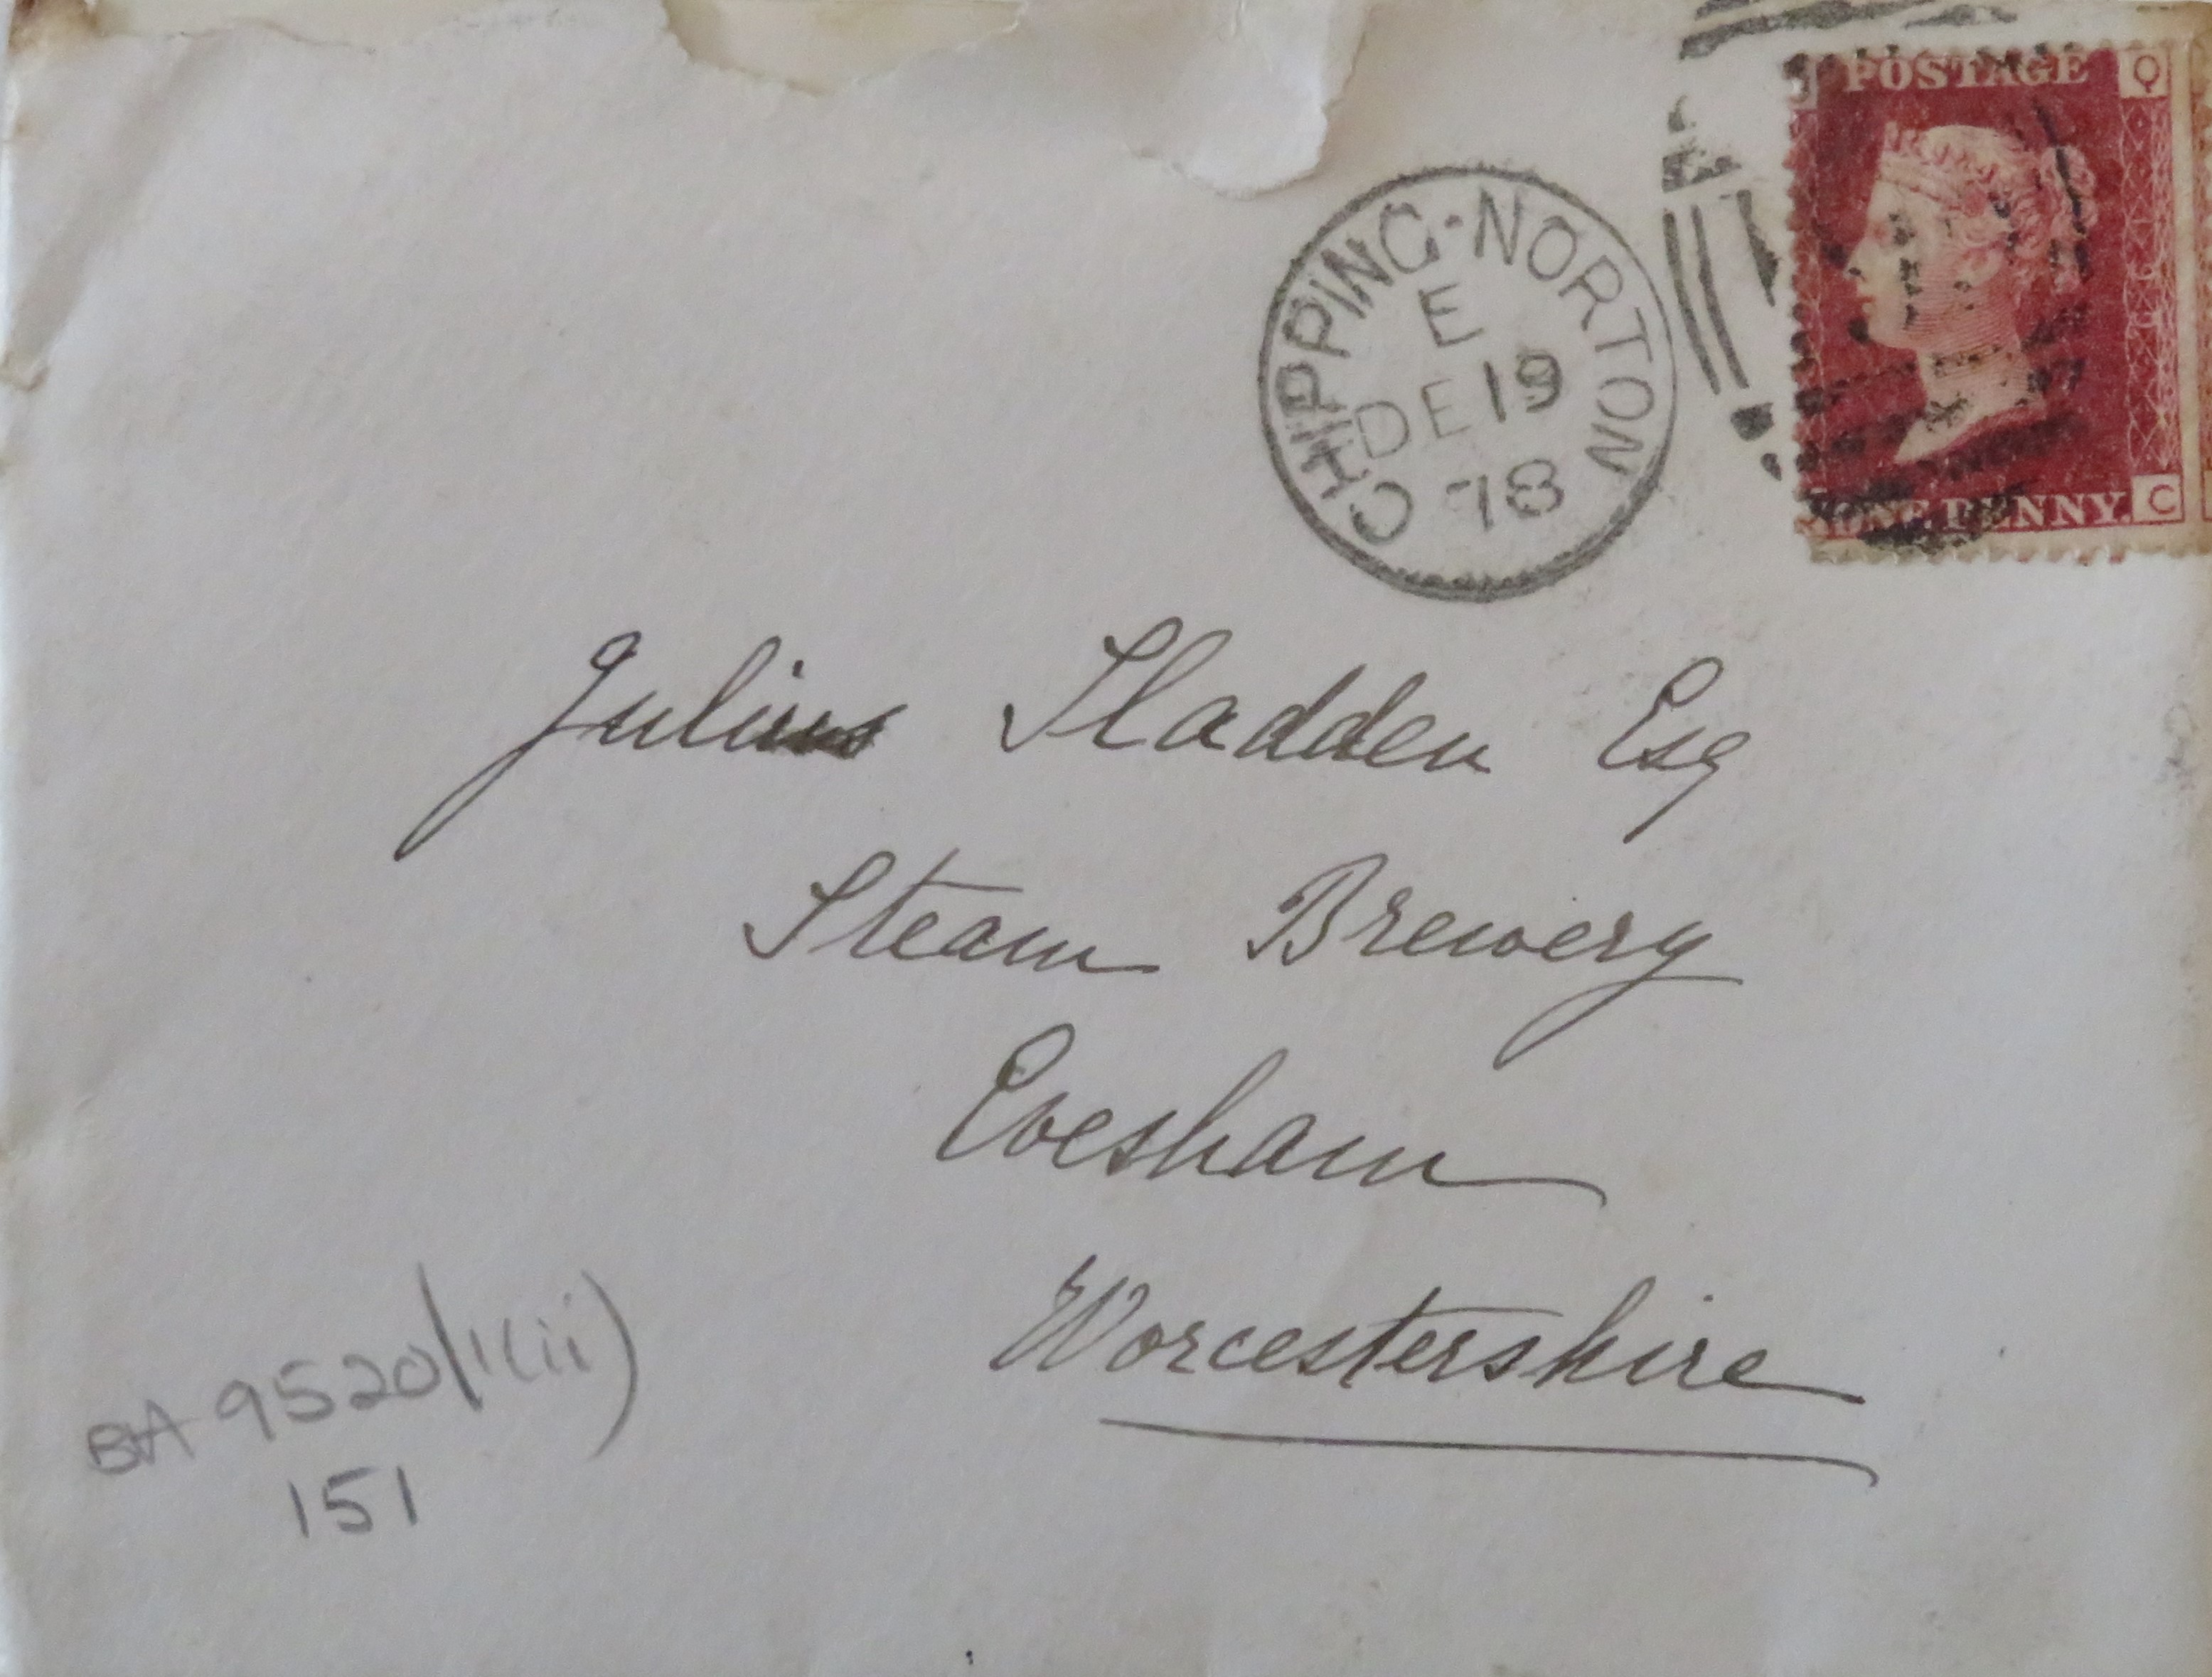 POSTAGE Q
CHIPPING-NORTON
E
DE 19
78
ONE PENNY. C
Julius Sladden Esq
Steam Brewery
Evesham
Worcestershire
BA 9520/1(ii)
151